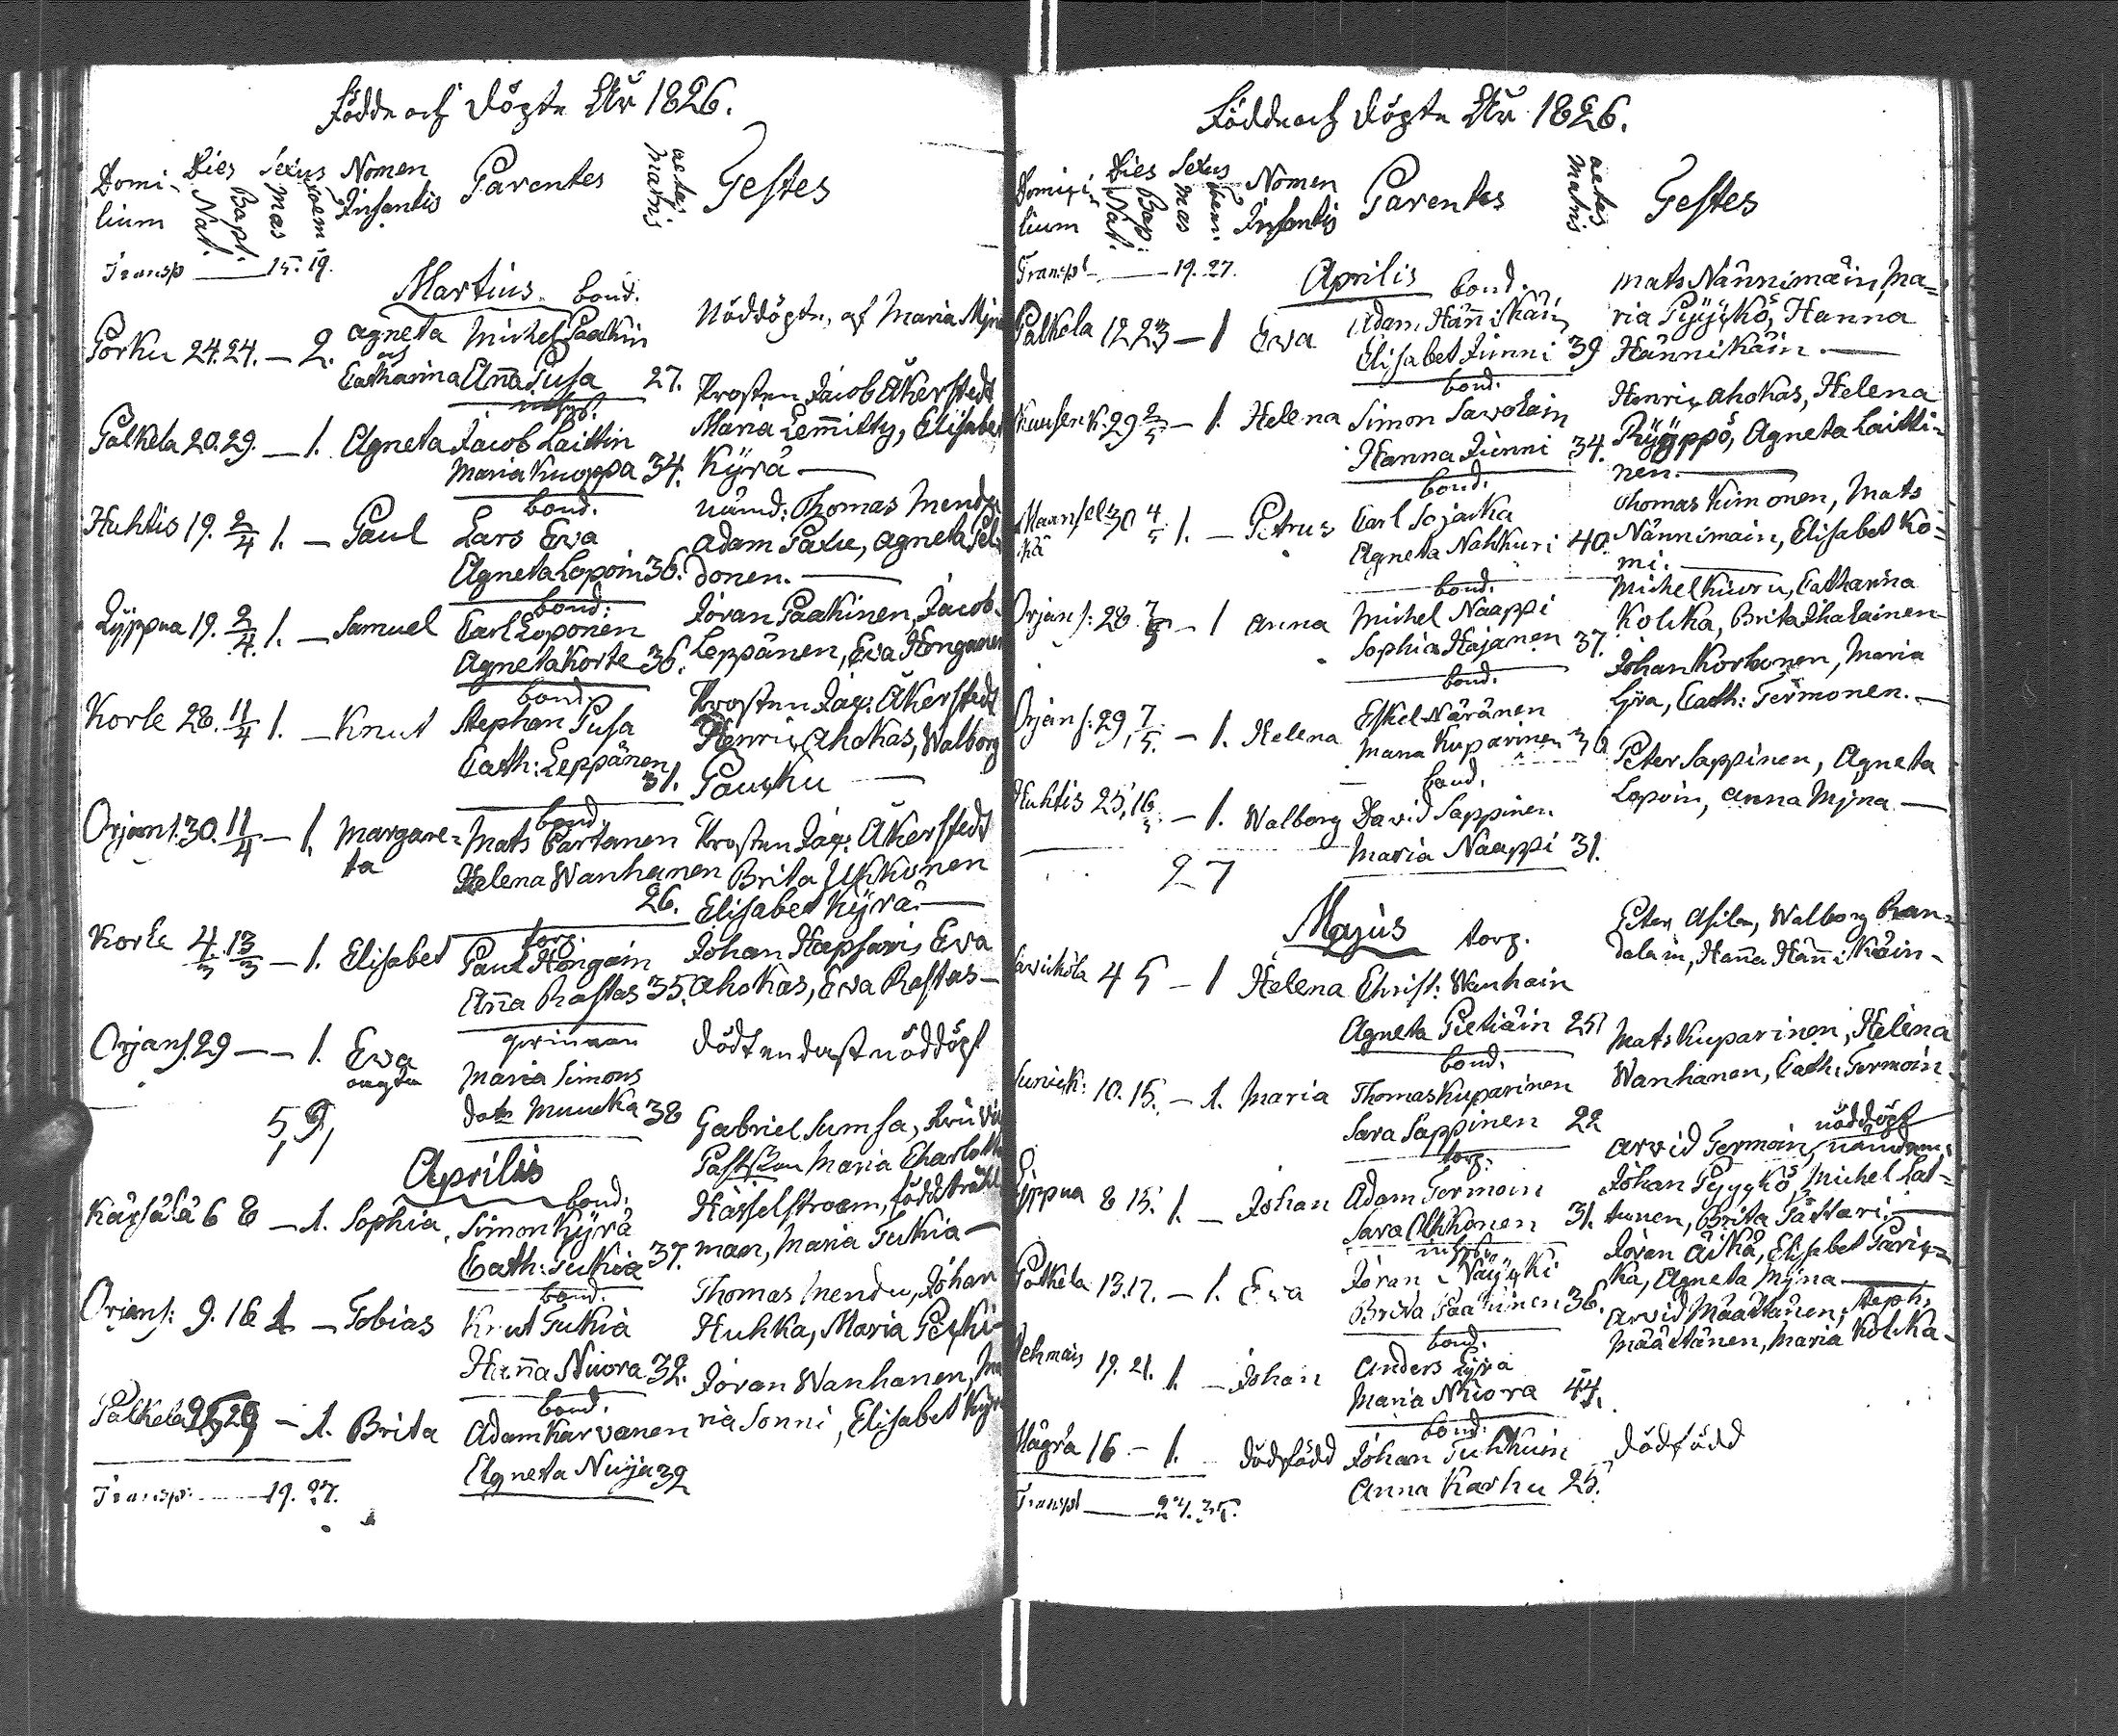 Födde och döpte År 1826.
Domi-
lium
Dies
Nat.
Bapt.
Sexus
Mas
foem.
Nomen
Infantis
Parentes
aetas
Matris
Testes
Transp 15. 19.
Martius
bond.
Porku 24. 24. — 2. Agneta Michel Paakin
och
Catharina Anna Pusa 27.
Nöddöpte, af Maria Myn
inhys.
Palkela 20. 29. — 1. Agneta Jacob Laittin
Maria Kuoppa 34.
Prosten Jacob Åkerstedt
Maria Lemmitty, Elisabet
Kÿrä —
bond.
Huhtis 19. 2/4 1. — Paul Lars Ewa
Agneta Lopoin 36.
nämd: Thomas Mendu
Adam Paxu, Agneta Pel
donen. —
bond:
Lyppua 19. 2/4. 1. — Samuel Carl Loponen
Agneta Korte 36.
Jöran Paakinen, Jacob
Leppänen, Ewa Honganen
bond.
Korle 28. 11/4 1. — Knut Stephan Pusa
Cath: Leppänen
31.
Prosten Jac: Åkerstedt
Henric Ahokas, Walborg
Paucku —
bond.
Orjans. 30. 11/4 — 1. Margare-
ta
Mats Partanen
Helena Wanhanen
26.
Prosten Jac: Åkerstedt
Brita Ukkonen
Elisabet Kÿrä. —
torp.
Korle 4/3. 13/3 — 1. Elisabet Paul Hongain
Anna Rastas 35.
Johan Hapsari, Ewa
Ahokas, Ewa Rastas —
qvinnan
Orjans. 29 — — 1. Ewa
oägta
Maria Simons
dotr Muucka 38
dödt endast nöddöpt
5, 9,
Aprilis
bond:
Käxsälä 6 8 — 1. Sophia Simon Kÿrä
Cath: Tukia 37.
Gabriel Sumsa,
Maria Charlotta
Hässelstroem, född Stråhl
man, Maria Tukia —
bond.
Orjans: 9. 16 1 — Tobias Knut Tukia
Hanna Nuora 32.
Thomas Mendu, Johan
Huhka, Maria Peski-
bond.
Palkela 25 29 — 1. Brita Adam Karvanen
Agneta Nuija 32
Jöran Wanhanen, Ma
ria Sonni, Elisabet Kÿr
Transp: 19. 27.
Födde och döpte År 1826.
Domici
lium
Dies
Nat.
Bap.
Sexus
Mas
foem.
Nomen
Infantis
Parentes
aetas
Matris
Testes
Transpt 19. 27.
Aprilis
bond.
Palkela 12 23 — 1 Ewa Adam Hännikäin
Elisabet Junni 39
Mats Nännimäin, Ma=
ria Pÿÿkkö, Hanna
Hännikäin. —
bond.
29 2/5 — 1. Helena Simon Savolain
Hanna Junni 34.
Henric Ahokas, Helena
Rÿÿppö, Agneta Laitti-
nen. —
bond.
Maansel=
kä
30 4/5 1. — Petrus Carl Sojakka
Agneta Nakkuri 40.
Thomas Kimonen, Mats
Nännimäin, Elisabet Ko=
mi. —
bond.
Orjans: 28. 7/5 — 1 Anna Michel Naappi
Sophia Hajanen 37.
Michel Kiuru, Catharina
Kolcka, Brita Ihalainen
bond.
Orjans: 29, 7/5. — 1. Helena Eskel Näränen
Maria Kuparinen 36
Johan Korhonen, Maria
Lyra, Cath: Termonen. —
bond.
Huhtis 25, 16. — 1. Walborg David Sappinen
Maria Naappi 31.
Peter Sappinen, Agneta
Lopoin, Anna Myna —
27
Majus
torp.
4 5 — 1 Helena Christ: Wanhain
Agneta Pietiäin 25
Peter Asila, Walborg Ran=
dalain, Hanna Hännikäin-
bond.
10. 15. — 1. Maria Thomas Kuparinen
Sara Sappinen 22
Mats Kuparinen, Helena
Wanhanen, Cath: Termoin
torp.
Lyppua 8 15. 1. — Johan Adam Termoin
Sara Ahkonen 31.
nöddöpt
Arvid Termoin, nämdem:
Johan Pyykkö, Michel Lat-
tunen, Brita Tattari. —
inhys
Palkela 13. 17. — 1. Ewa Jöran Näykki
Brita Paakinen 36.
Jöran Äikä, Elisabet Paric=
ka, Agneta Myna —
bond.
19. 21. 1. — Johan Anders Lyra
Maria Nuora 44.
Arvid Määttänen, Steph.
Määttänen, Maria Kolcka-
bond.
Hägra 16 — 1. dödfödd Johan Tukkuin
Anna Karhu 25.
dödfödd
Transpt 24. 35.